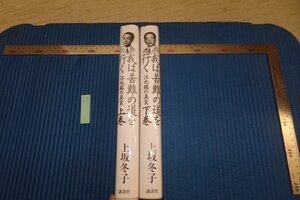 我は苦難の道を行く
汪兆銘の真実 上巻
上坂冬子
講談社
我は苦難の道を行く
汪兆銘の真実 下巻
上坂冬子
講談社